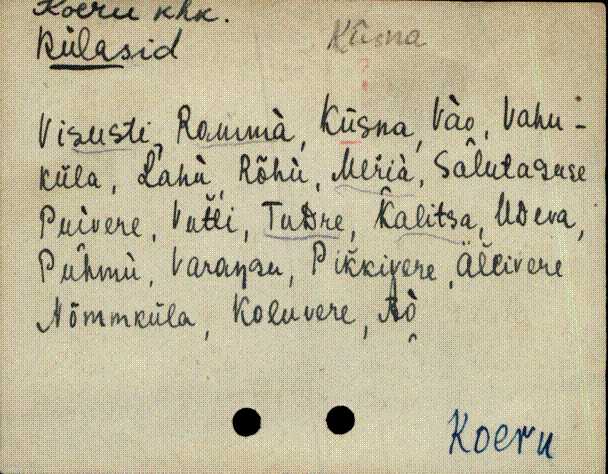 Koeru khk.
Külasid
Küsna
?
Visusti, Rammà, Küsna, Vào, Vahu-
küla, Lahù, Rõhù, Merià, Sàlutaguse
Puìvere, Vutìi, Tudre, Kalitsa, Udeva,
Puhmù, Varangu, Pikkivere, Äĺĺivere
Nõmmküla, Koluvere, Rò
Koeru